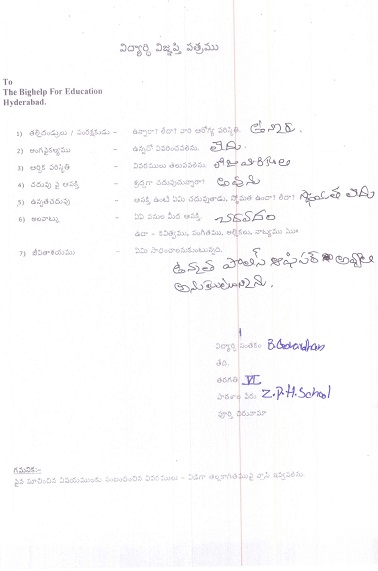 విద్యార్థి విజ్ఞప్తి పత్రము
To
The Bighelp For Education
Hyderabad.
1) తల్లిదండ్రులు / సంరక్షకుడు - ఉన్నారా? లేదా? వారి ఆరోగ్య పరిస్థితి. ఉన్నారు.
2) అంగవైకల్యము - ఉన్నచో వివరించవలెను. లేదు
3) ఆర్థిక పరిస్థితి - వివరములు తెలుపవలెను.
4) చదువు పై ఆసక్తి - శ్రద్ధగా చదువుచున్నారా? అవును
5) ఉన్నతచదువు - ఆసక్తి ఉంటే ఏమి చదువుతాడు, స్తోమత ఉందా? లేదా? స్తోమత లేదు
6) అలవాట్లు - ఏఏ పనుల మీద ఆసక్తి. చదవడం
ఉదా - కవిత్వము, సంగీతము, ఆర్టికలు, నాట్యము మొ
7) జీవితాశయము - ఏమి సాధించాలనుకుంటున్నది.
ఉన్నత పోలీస్ ఆఫీసర్ అవ్వాలి
అనుకుంటున్నాను.
విద్యార్థి సంతకం B.Govardhan
తేది.
తరగతి VI
పాఠశాల పేరు Z.P.H.School
పూర్తి చిరునామా
గమనిక:-
పైన సూచించిన విషయములకు సంబంధించిన వివరములు - విడిగా తెల్లకాగితముపై వ్రాసి ఇవ్వవలెను.